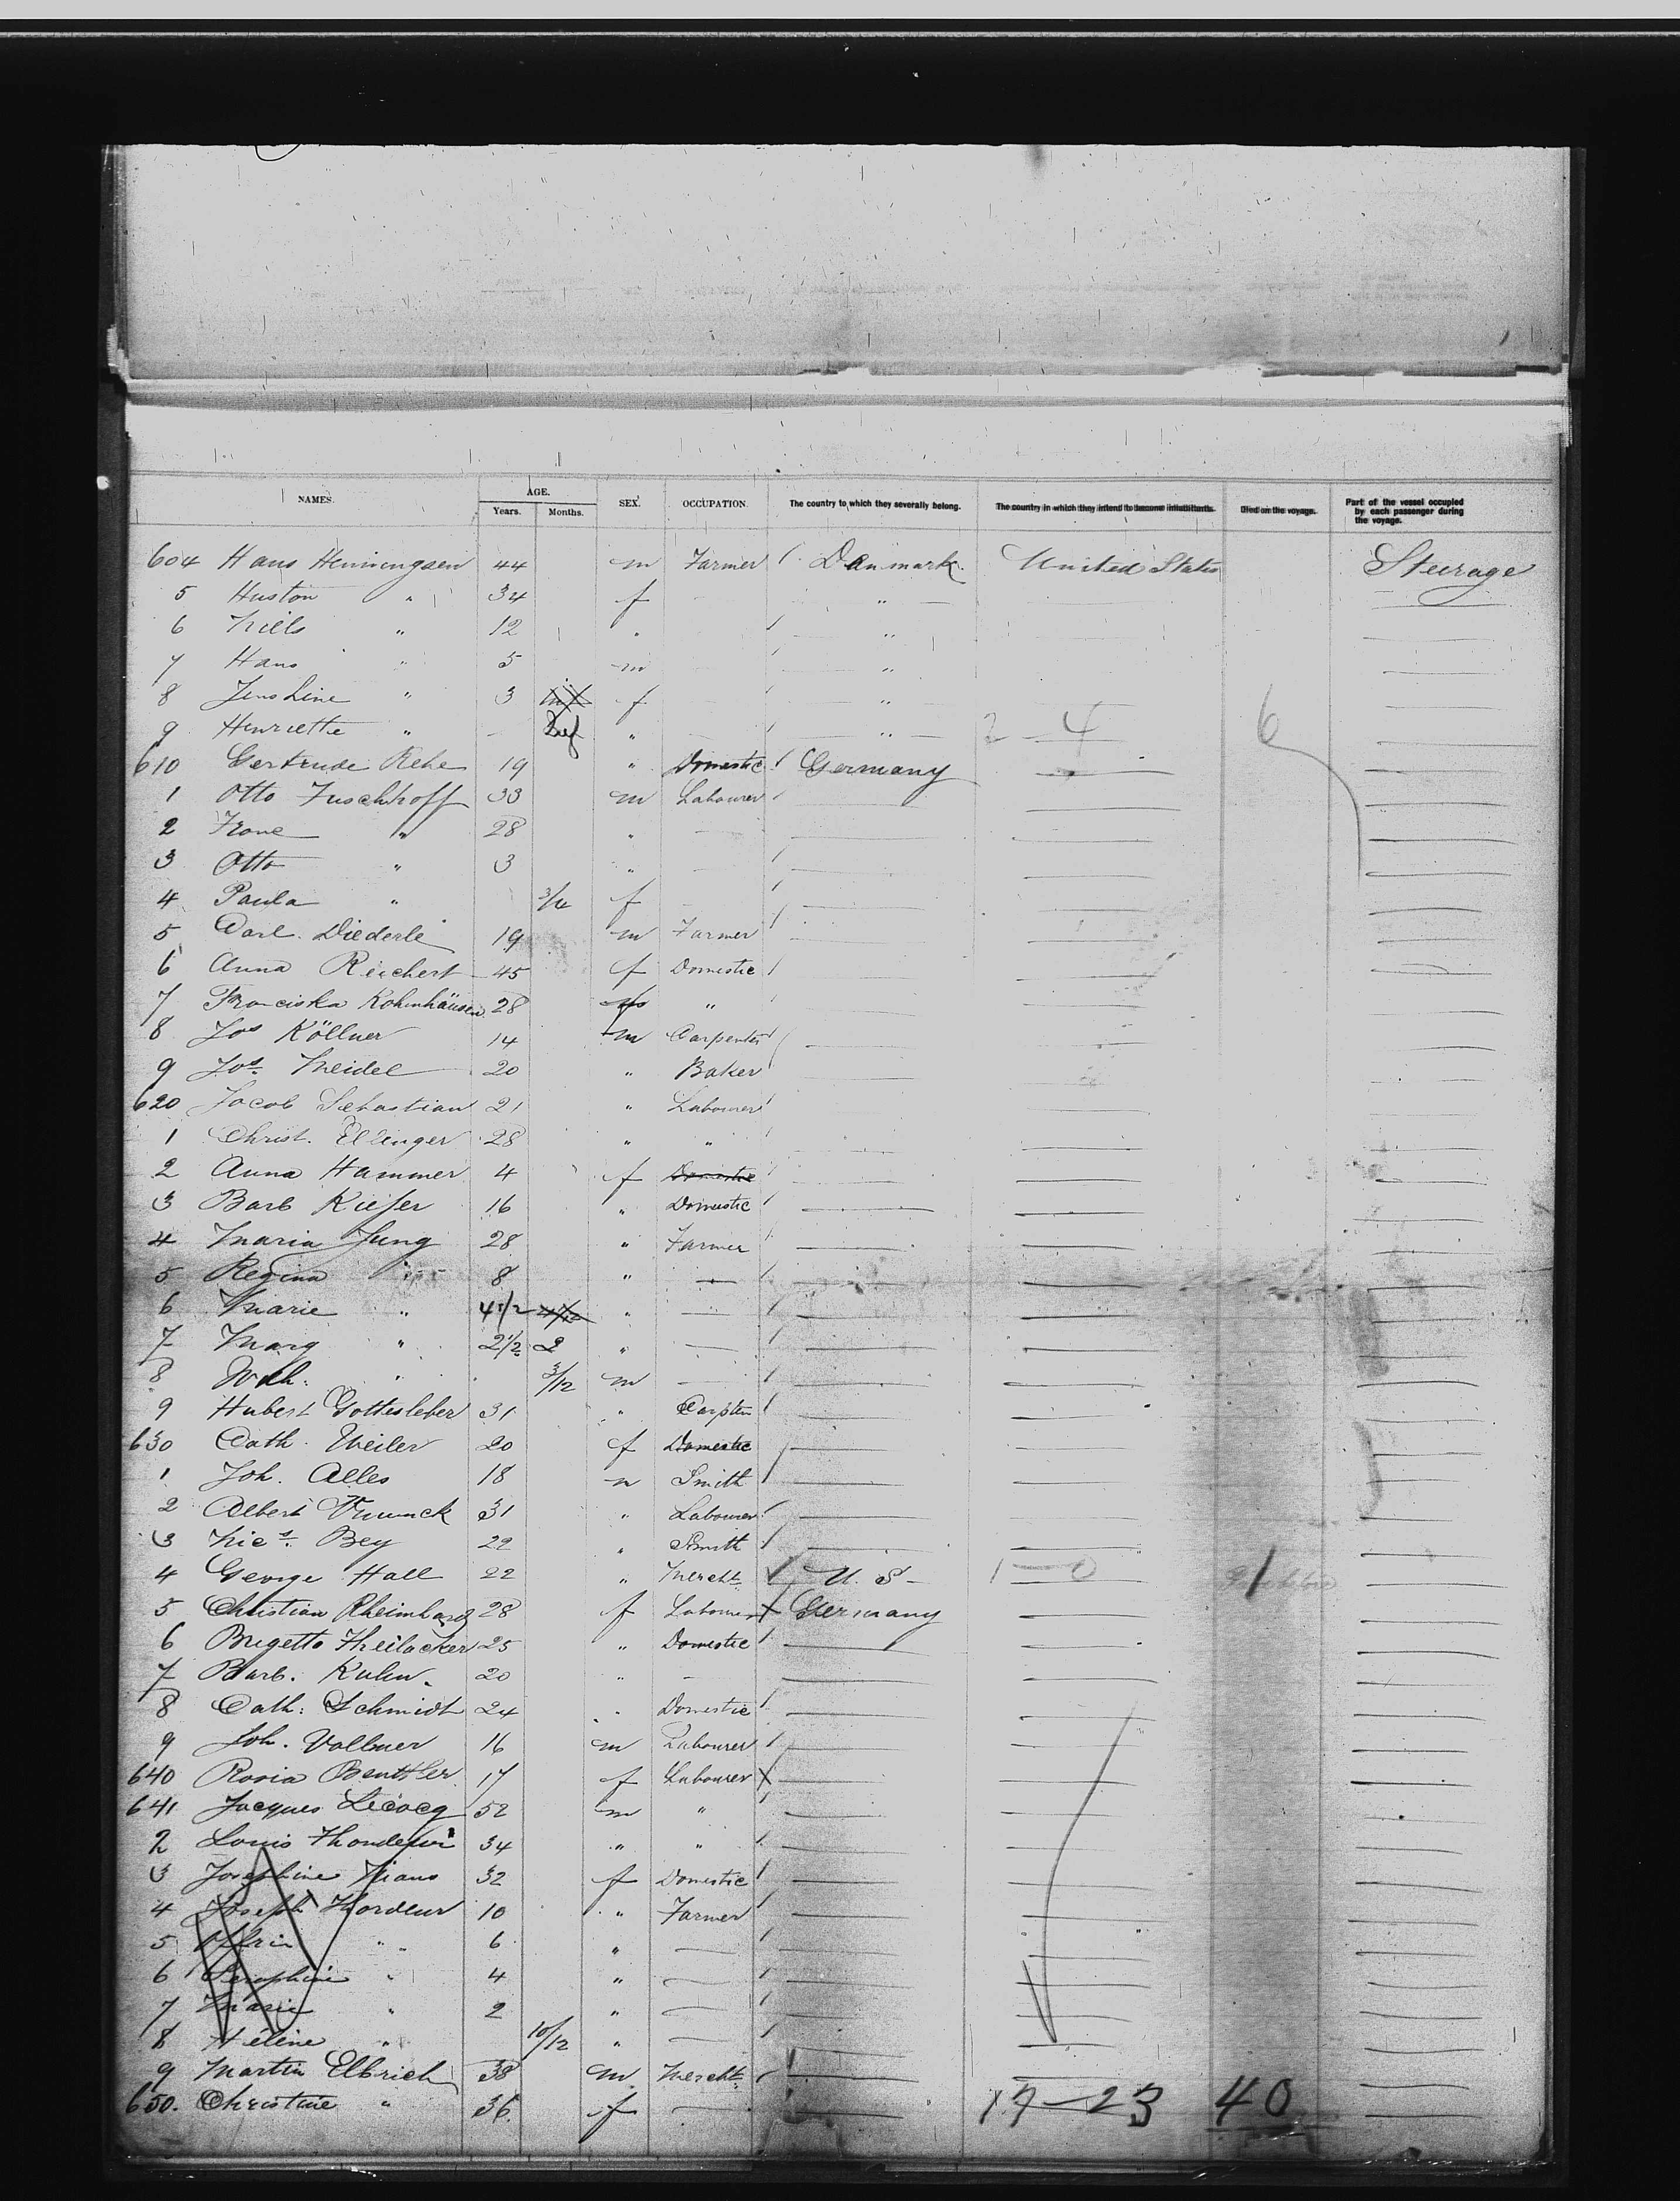 NAMES. AGE. Years. Months. SEX. OCCUPATION. The country to which they severally belong. The country in which they intend to become inhabitants. Died on the voyage. Part of the vessel occupied by each passenger during the voyage.
604 Hans Henningsen 44 m Farmer Denmark United States Steerage
5 Huston " 34 f "
6 Niels " 12 " "
7 Hans " 5 m "
8 Jens Line " 3 f "
9 Henriette " " " 2 4 6
610 Gertrude Rehe 19 " Domestic Germany
1 Otto Fuschhoff 33 m Labourer
2 Frone " 28 "
3 Otto " 3 "
4 Paula " 3/4 f
5 Carl Diederle 19 m Farmer
6 Anna Reichert 45 f Domestic
7 Franciska Kohnhäusen 28 "
8 Jos Köllner 14 m Carpenter
9 Jos. Neidel 20 " Baker
620 Jacob Sebastian 21 " Labourer
1 Christ. Ellinger 28 " "
2 Anna Hammer 4 f Domestic
3 Barb Kiefer 16 " Domestic
4 Maria Jung 28 " Farmer
5 Regina " 8 "
6 Marie " 4 1/2 "
7 Marg " 2 1/2 2 "
8 " 3/12 m
9 Hubert Gottesleber 31 " Carpten
630 Cath. Weiler 20 f Domestic
1 Joh. Alles 18 m Smith
2 Albert 31 " Labourer
3 Nics. Bey 22 " Smith
4 George Hall 22 " Mercht U. S - 1 0 1
5 Christian Rheimhard 28 f Labourer Germany
6 Brigetto Theilacker 25 " Domestic
7 Barb. Kuhn. 20 "
8 Cath: Schmidt 24 " Domestic
9 Joh. Vollmer 16 m Labourer
640 Rosia 17 f Labourer
641 Jacques Lecocq 52 m "
2 Louis 34 " "
3 Josephine 32 f Domestic
4 Joseph Thordeur 10 " Farmer
5 " 6 "
6 Seraphine " 4 "
7 Marie " 2 "
8 Heline " 10/12 "
9 Martin Elbrich 38 m. Mercht
650. Christine " 36 f 17-23 40